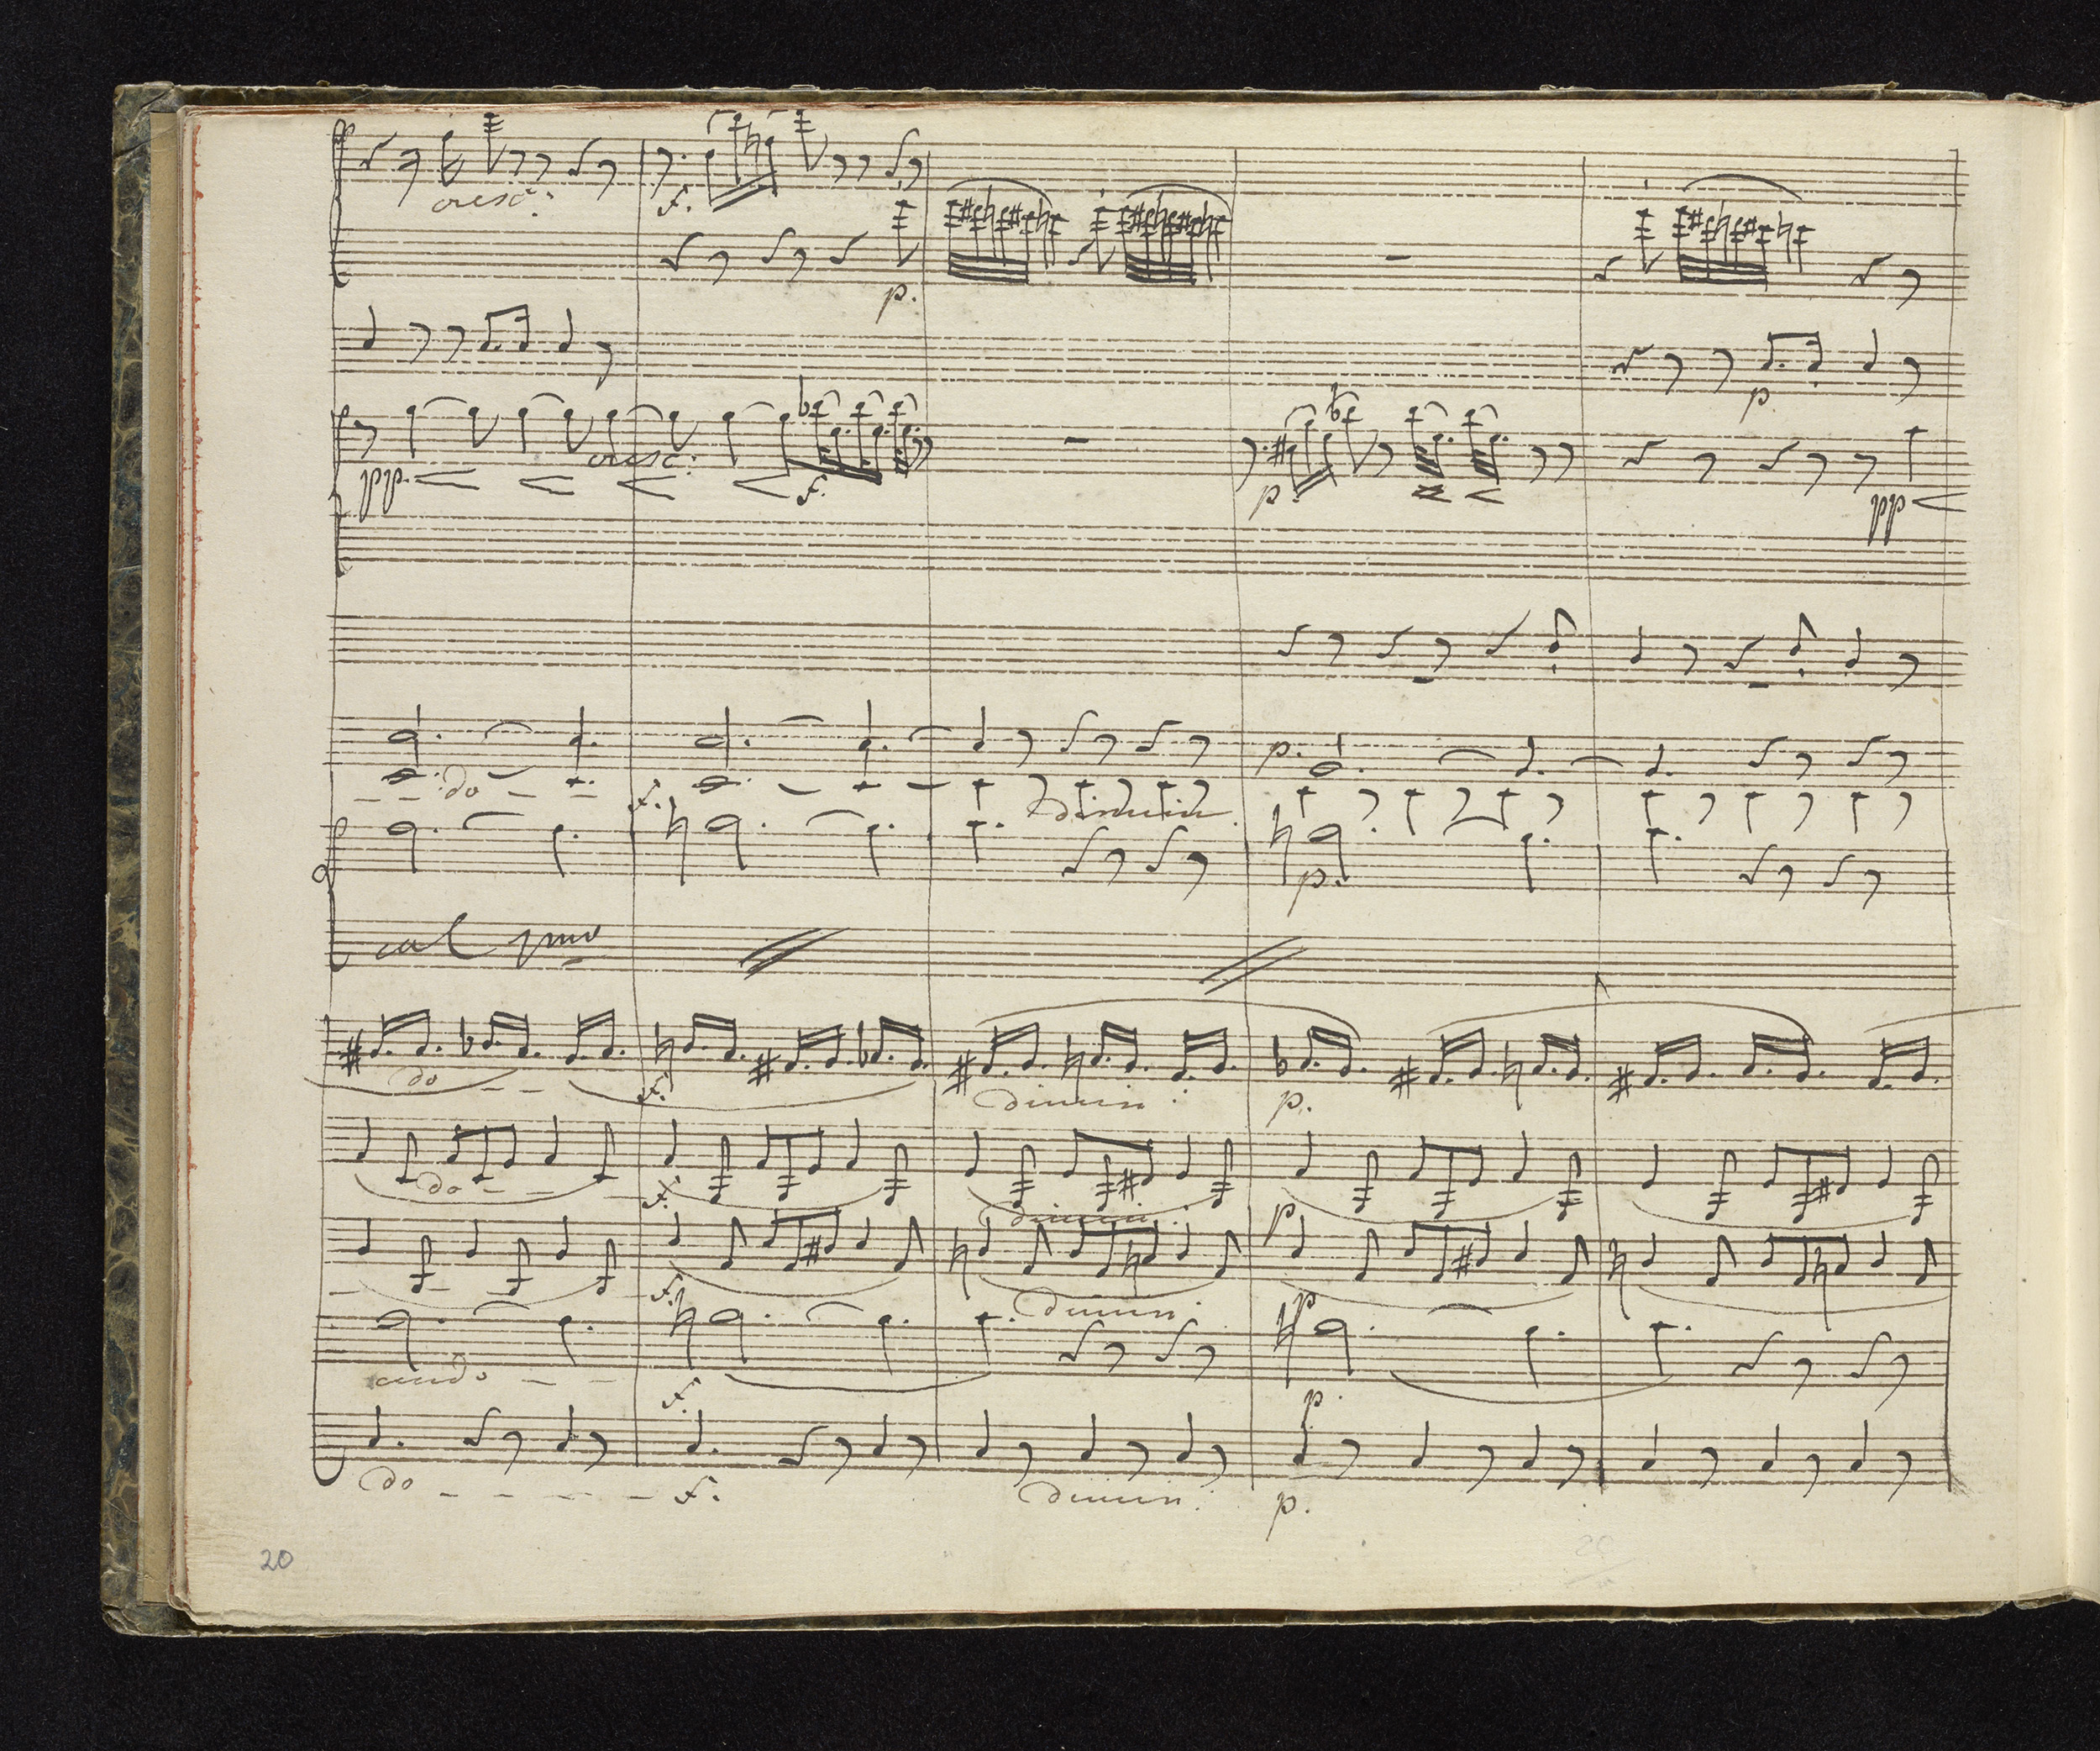 cresc: f.
p.
p.
pp. cresc: f. p. pp
p.
do f. dimin.
p.
col primo
do f. dimin: p.
do f. dimin: p
f. dimin: p
cendo f. p.
do f. dimin: p.
20